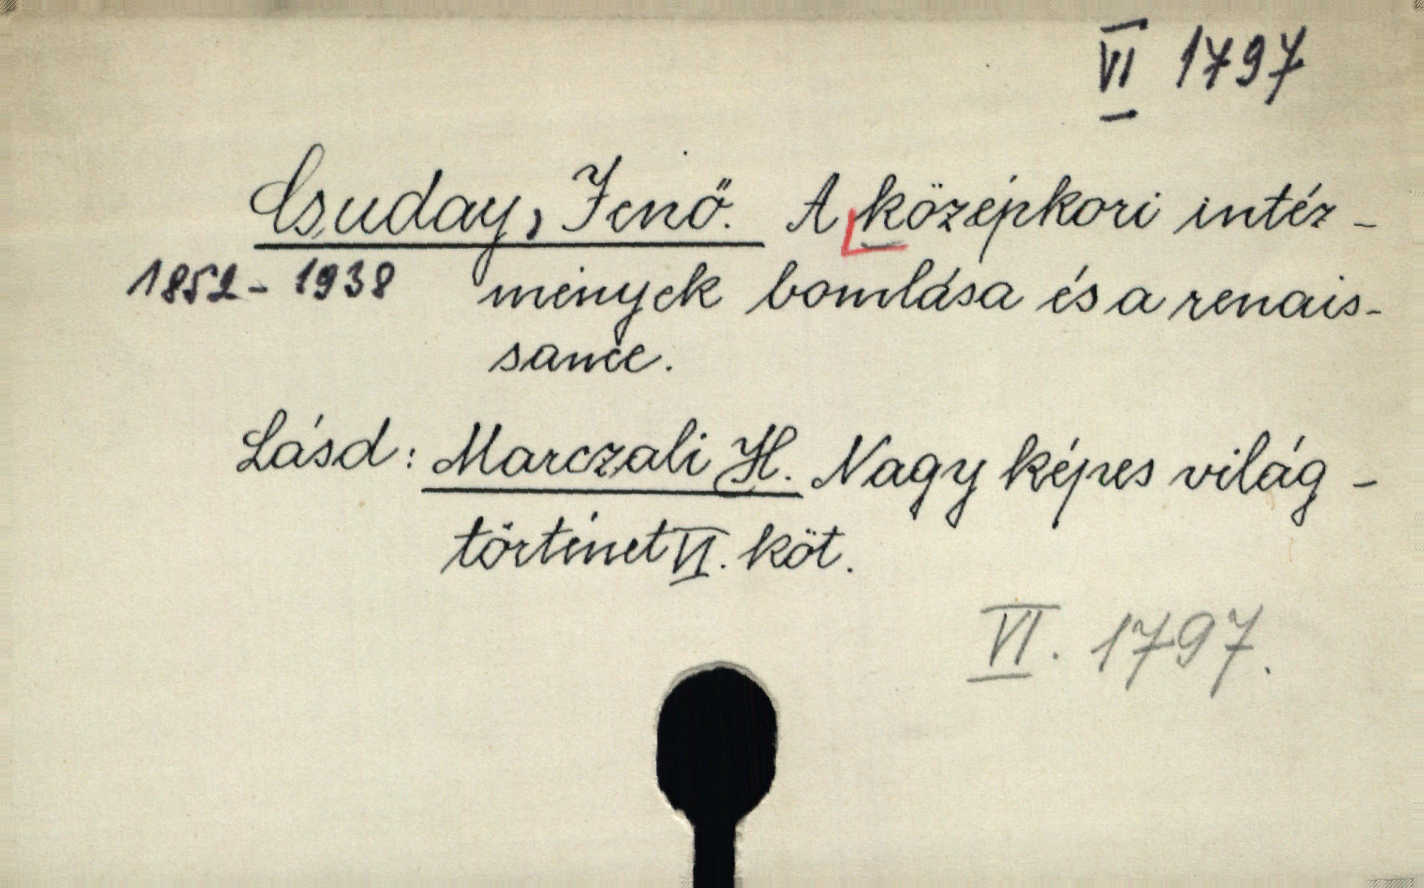 VI 1797
Csuday, Jenő. A középkori intéz-
1852-1938 mények bomlása és a renais-
sance.
Lásd: Marczali H. Nagy képes világ-
történet VI. köt.
VI. 1797.